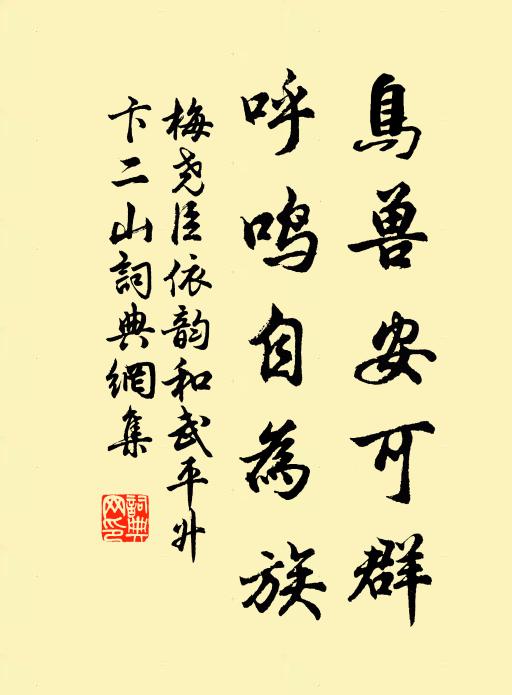 鳥兽安可群
呼鸣自為族
梅尧臣依韵和武平卄
卞二山詞典網集
詞典網印